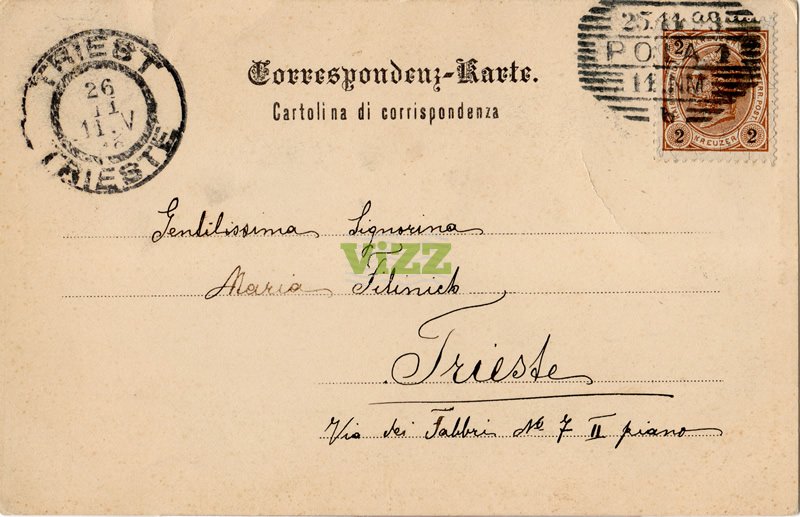 TRIEST
26
11
11.V
TRIESTE
Correspondenz-Karte.
Cartolina di corrispondenza
25.11.98
POLA 1
11 NM
2
2 KREUZER 2
Gentilissima Signorina
ViZZ
Maria Filinich
Trieste
Via dei Fabbri No 7 II piano